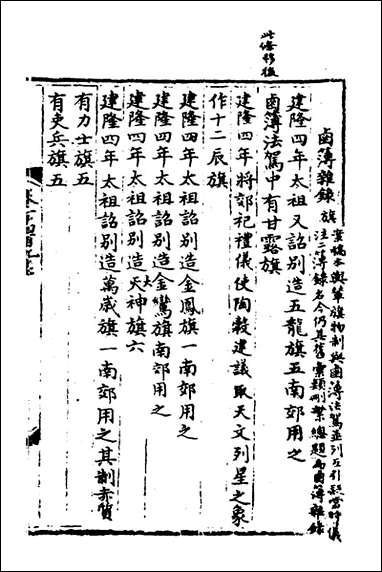 此條移後
鹵簿雜錄
旗
案稿本輿輦旗物制與鹵簿法駕並列互引
注二簿錄名今仍其舊彙類刪繁總題為鹵簿雜錄
建隆四年太祖又詔別造五龍旗五南郊用之
鹵簿法駕中有甘露旗
建隆四年將郊祀禮儀使陶穀建議取天文列星之象
作十二辰旗
建隆四年太祖詔別造金鳳旗一南郊用之
建隆四年太祖詔別造金鸞旗南郊用之
建隆四年太祖詔別造大神旗六
建隆四年太祖詔別造萬歲旗一南郊用之其制赤質
有力士旗五
有吏兵旗五